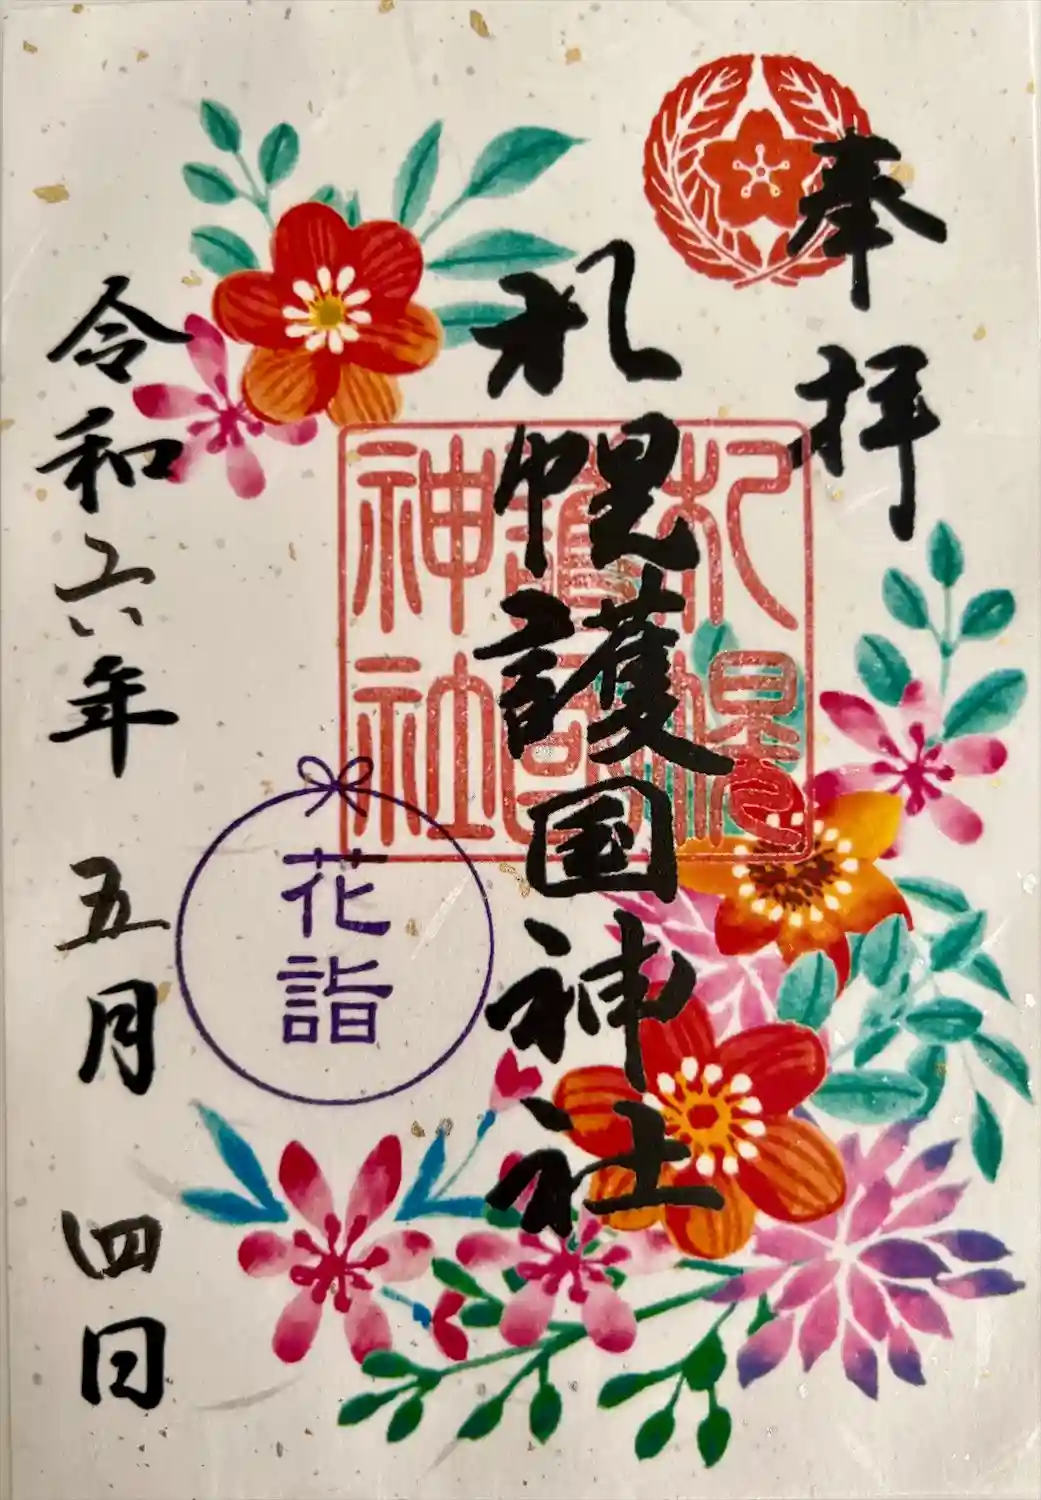 奉拝
札幌護国神社
札幌
護国
神社
花詣
令和六年 五月 四日